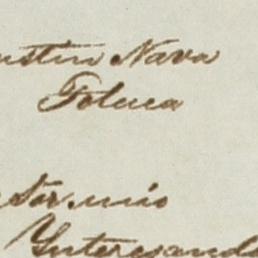 ustin Nava
Toluca
Sor. mio
Interesando